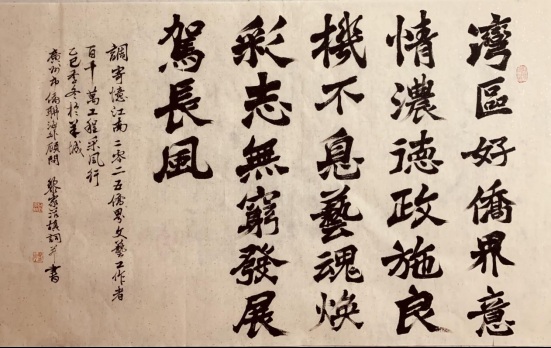 灣區好僑界意
情濃德政施良
機不息藝魂煥
彩志無窮發展
駕長風
調寄憶江南二零二五僑界文藝工作者
百千萬工程采風行
乙巳季冬於羊城
廣州市僑聯海外顧問 黎家 詞并書